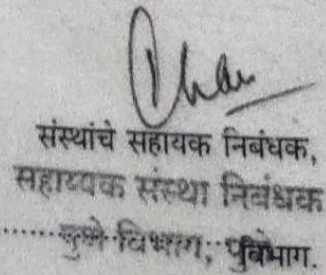 संस्थांचे सहायक निबंधक,
सहाय्यक संस्था निबंधक
पुणे विभाग, विभाग.